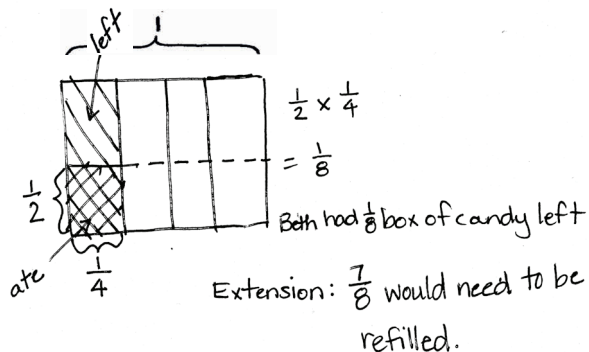 1
left
1/2 × 1/4
= 1/8
1/2
ate
1/4
Beth had 1/8 box of candy left
Extension: 7/8 would need to be
refilled.